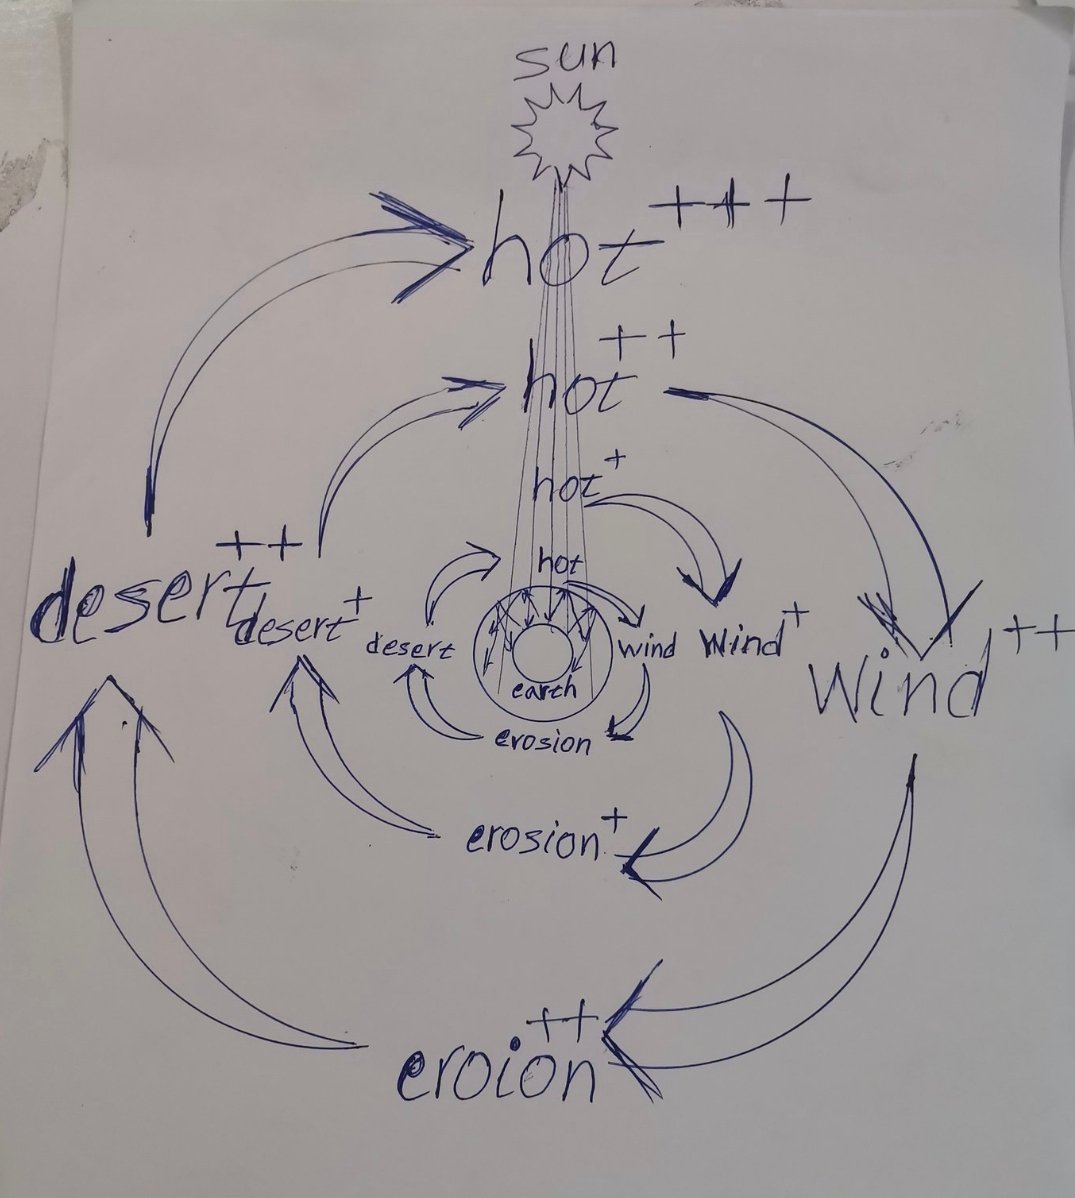 sun
hot+++
hot++
hot+
hot
desert++
desert+
desert
wind
Wind+
Wind++
earth
erosion
erosion+
eroion++